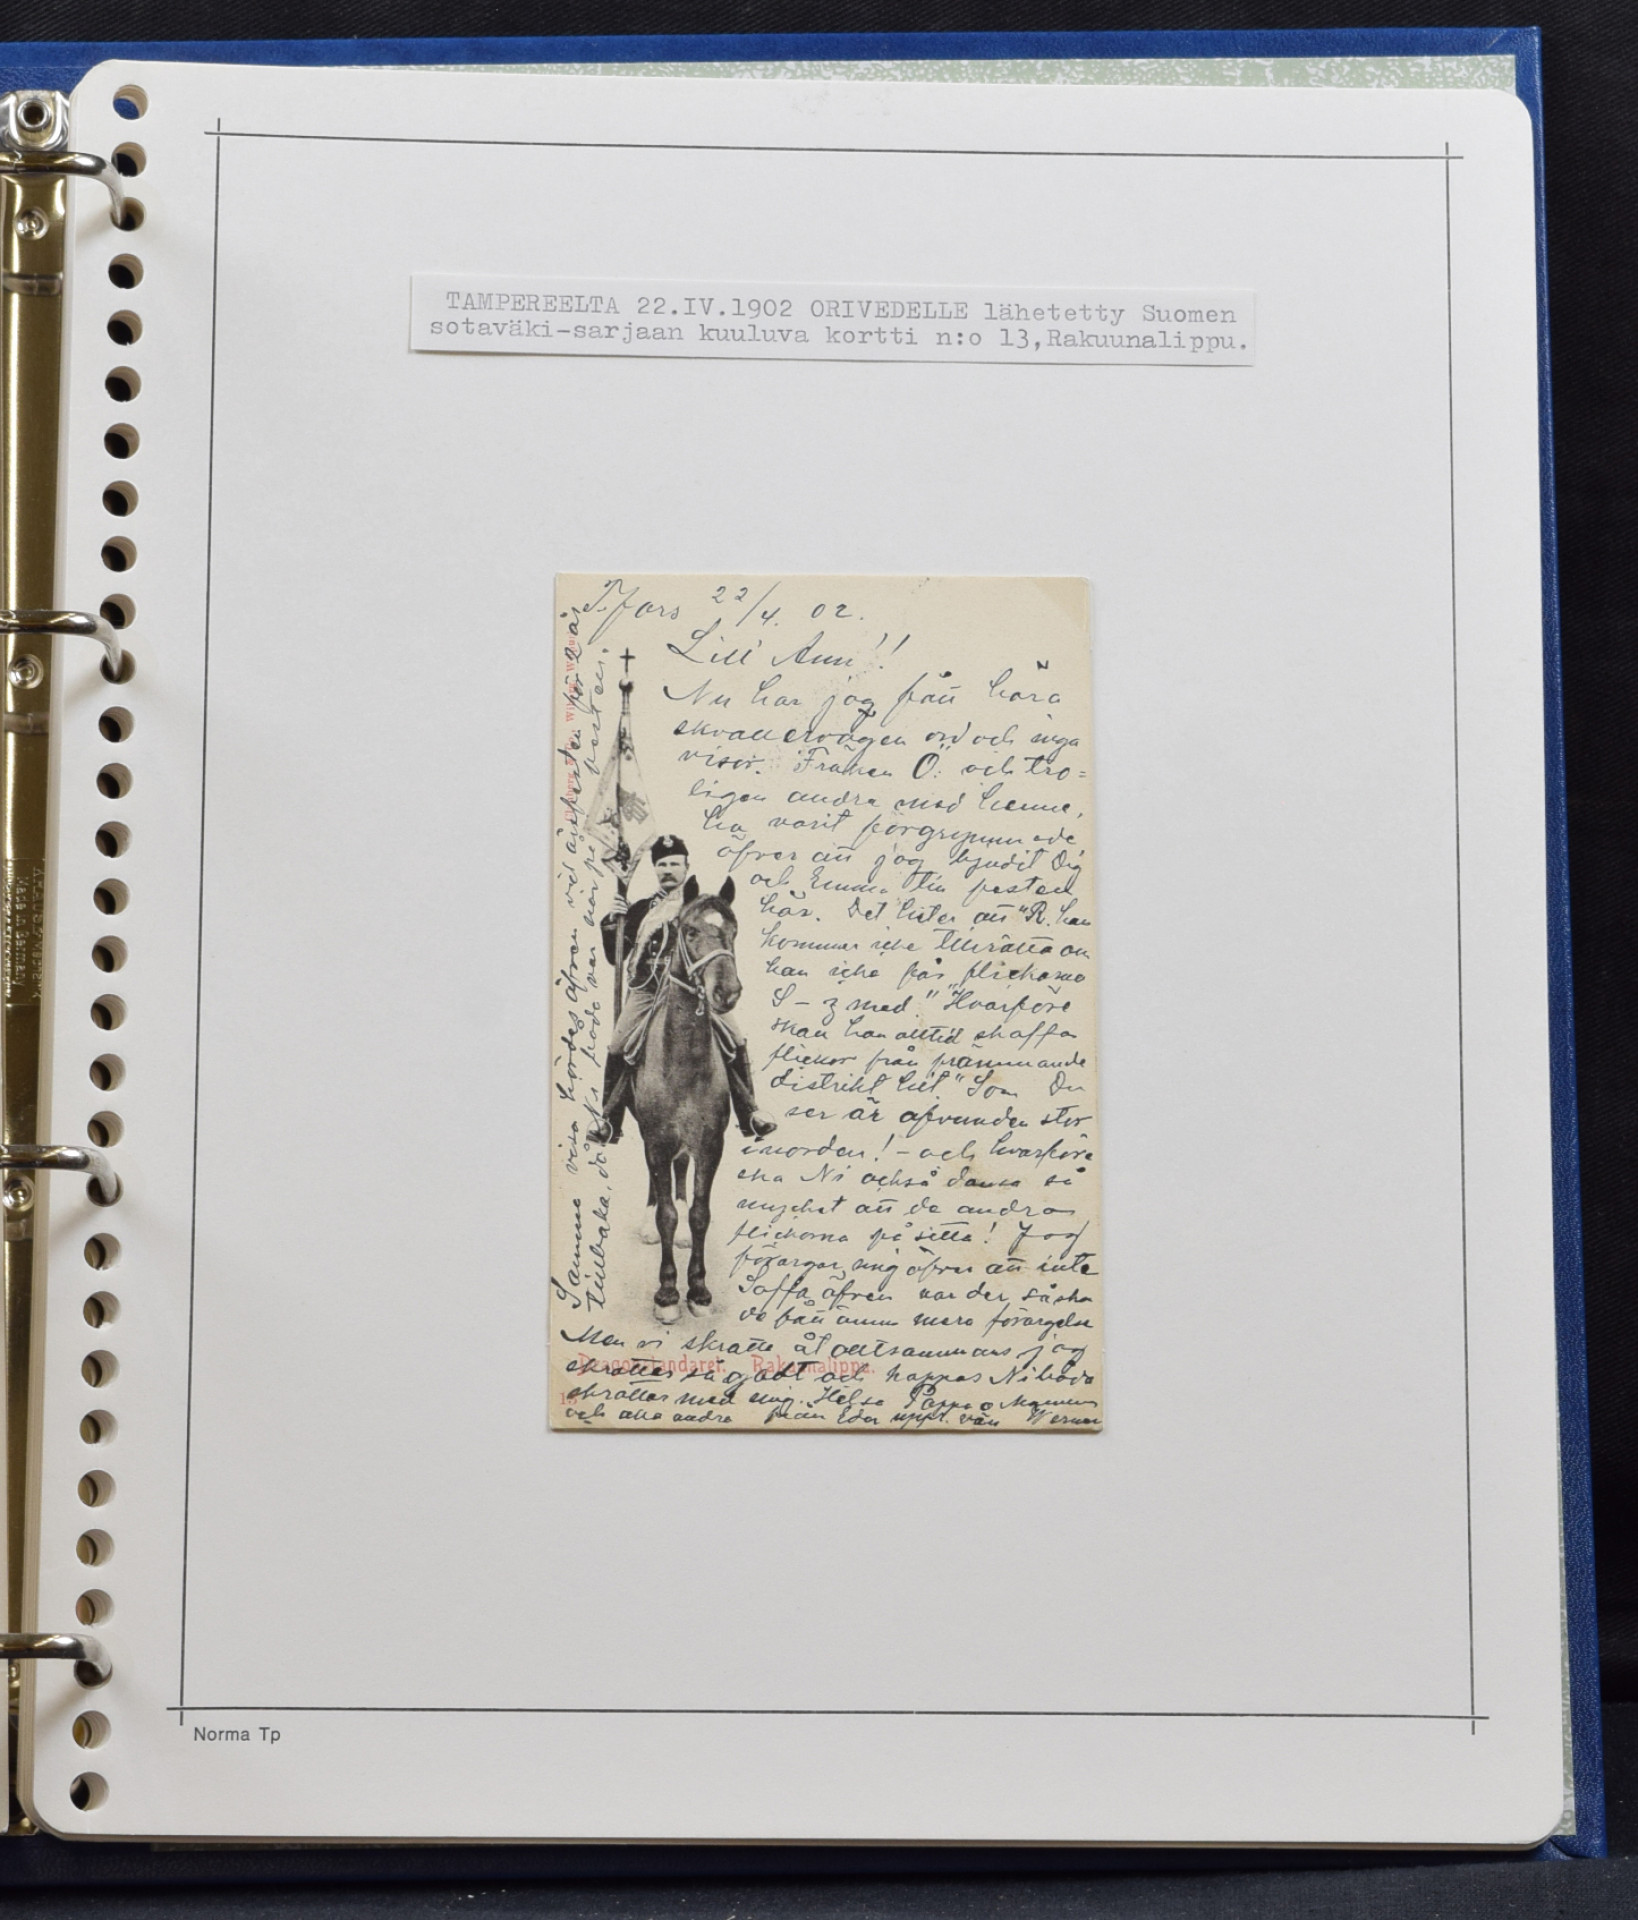 TAMPEREELTA 22.IV.1902 ORIVEDELLE lähetetty Suomen
sotaväki-sarjaan kuuluva kortti n:o 13,Rakuunalippu.
T.fors 22/4. 02.
Lill' Ann'!!
Nu har jag fått höra
skvallervägen ord och inga
visor. Fröken Ö: och tro=
ligen andra med henne,
ha varit förgrymmade
öfver att jag bjudit Dig
och Emma till festen
här. Det heter att "R. han
kommer icke tillrätta om
han icke får flickorna
S – z med." "Hvarföre
skall han alltid skaffa
flickor från främmande
distrikt hit." Som Du
ser är afvunden stor
i norden! – och hvarföre
ska Ni också dansa så
mycket att de andra
flickorna få sitta! Jag
förargar mig öfver att inte
Saffa äfven var der, så ska
de fått ännu mera förargelse
Men vi skratta åt alltsammans, jag
skrattar så godt och hoppas Ni båda
skrattar med mig. Helsa Pappa o Mamma
och alla andra från Eder uppr. vän Werner
Samma visa hördes äfven vid årsfesten för 2 år
tillbaka, då Ni båda var här på festen.
Dragonstandaret. Rakuunalippu.
13
Norma Tp
Made in Germany